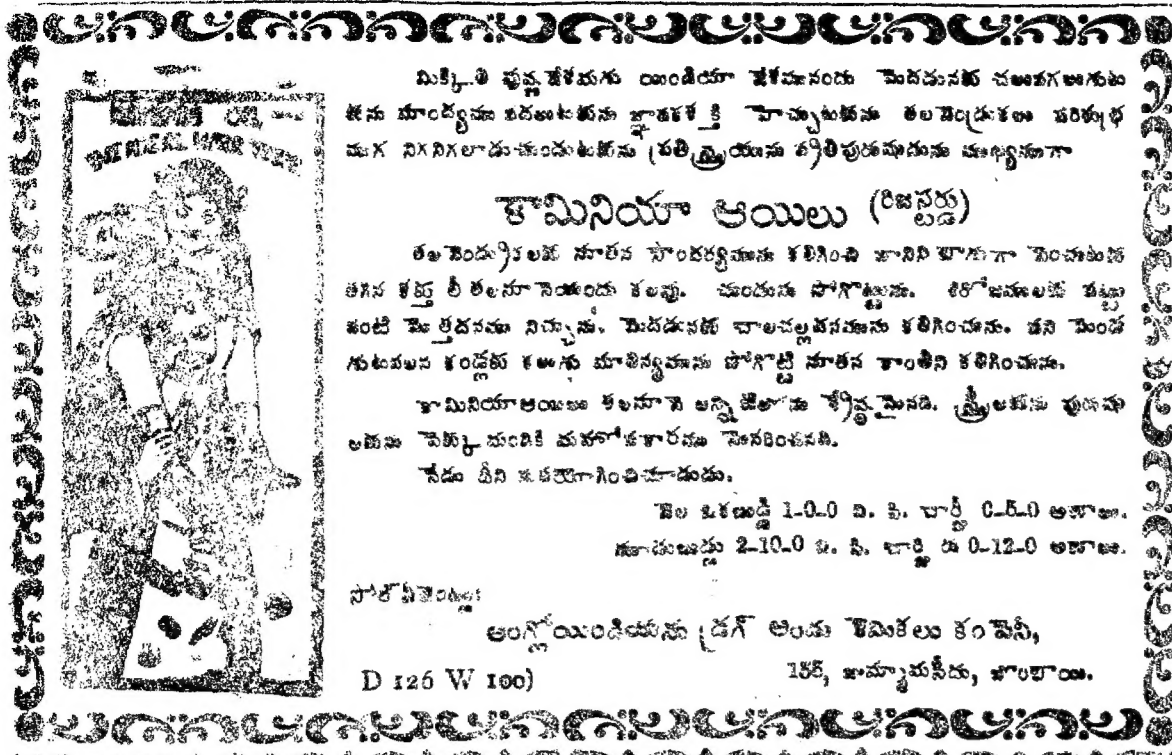 మిక్కిలి వుష్ణదేశమగు యిండియా దేశమునందు మెదడునకు చలువగలుగుట
కును మాంద్యము వదలుటకును జ్ఞాపకశక్తి హెచ్చుటకును తలవెంద్రుకలు పరిశుభ్ర
ముగ నిగనిగలాడుచుండుటకును ప్రతిస్త్రీయును ప్రతిపురుషుడును ముఖ్యముగా
కామినియా ఆయిలు (రిజస్టర్డు)
తలవెండ్రుకలకు నూతన సౌందర్యమును కలిగించి వానిని బాగుగా పెంచుటకు
తగిన శక్తు లీ తలనూనెయందు కలవు. చుండును పోగొట్టును. శిరోజములకు పట్టు
వంటి మెత్తదనము నిచ్చును. మెదడునకు చాలచల్లదనమును కలిగించును. పని మెండ
గుటవలన కండ్లకు కలుగు మాలిన్యమును పోగొట్టి నూతన కాంతిని కలిగించును.
కామినియాఆయిలు తలనూనె అన్నిటిలోను శ్రేష్ఠమైనది. స్త్రీలకును పురుషు
లకును పెక్కుమందికి మహోపకారము నొనరించినది.
నేడు దీని నుపయోగించిచూడుడు.
వెల ఒకబుడ్డి 1-0-0 వి. పి. చార్జీ 0-5-0 అణాలు.
మూడుబుడ్లు 2-10-0 వి. పి. చార్జి రు 0-12-0 అణాలు.
సోల్ ఏజెంట్లు:
ఆంగ్లోయిండియను డ్రగ్ అండు కెమికలు కంపెనీ,
D 126 W 100) 155, జుమ్మామసీదు, బొంబాయి.